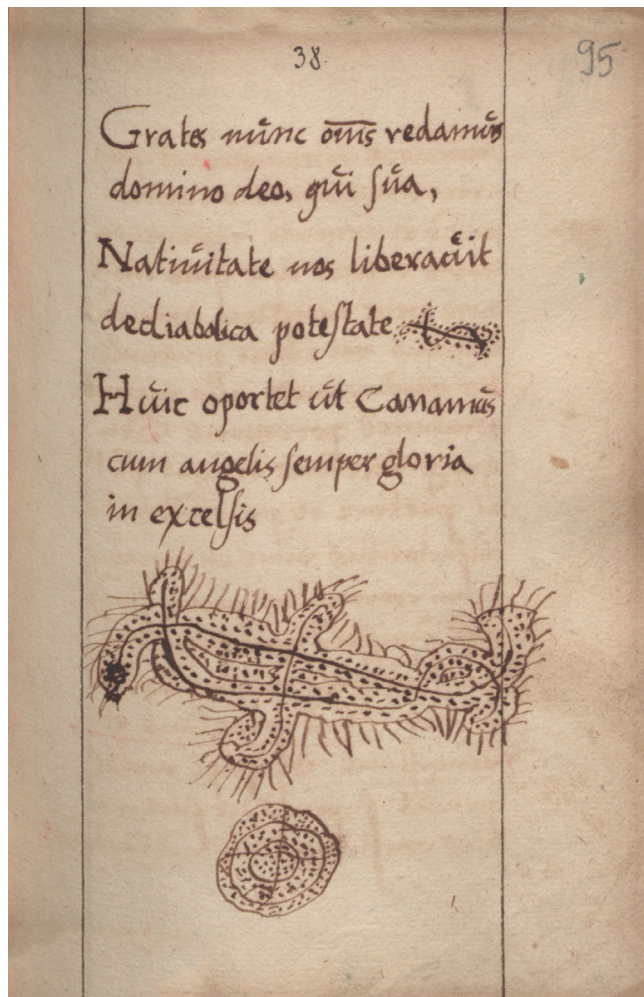 38
95
Grates nunc om̅s redamus
domino deo, qui ſua,
Natiuitate nos liberauit
dediabolica poteſtate
Huic oportet ut Canamus
cum angelis ſemper gloria
in excelſis